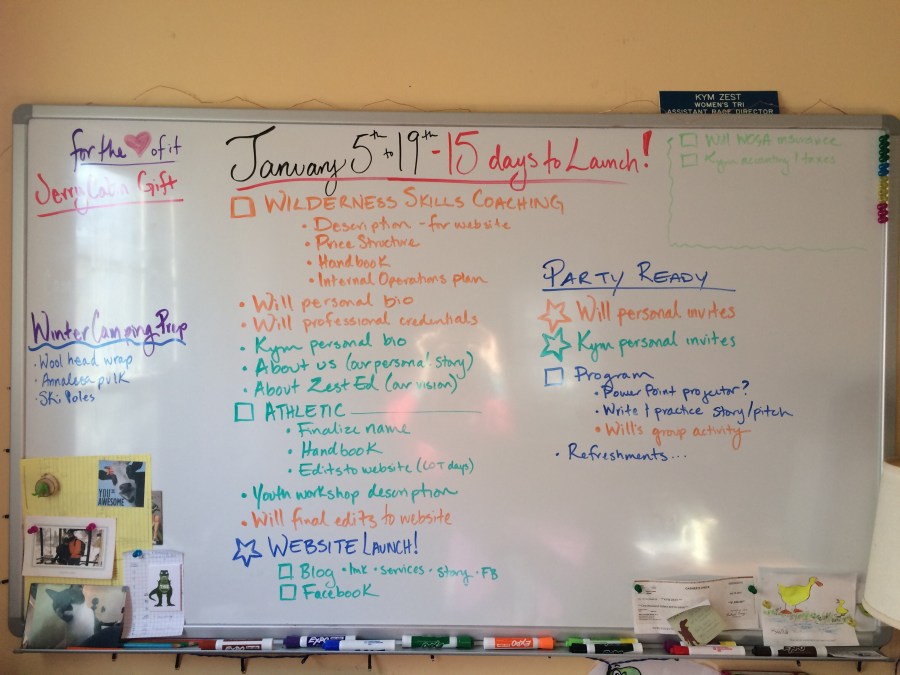 KYM ZEST
WOMEN'S TRI
ASSISTANT RACE DIRECTOR
for the ♥ of it
Jerry Cabin Gift
Winter Camping Prep
• Wool head wrap
• Annalesa pulk
• Ski Poles
YOU'RE
AWESOME
January 5th to 19th - 15 days to Launch!
□ WILDERNESS SKILLS COACHING
• Description - for website
• Price Structure
• Handbook
• Internal Operations plan
• Will personal bio
• Will professional credentials
• Kym personal bio
• About us (our personal story)
• About Zest Ed (our vision)
□ ATHLETIC
• Finalize name
• Handbook
• Edits to website
• Youth workshop description
• Will final edits to website
☆ WEBSITE LAUNCH!
□ Blog • Ink • services • story • FB
□ Facebook
□ Will insurance
□ Kym taxes
PARTY READY
☆ Will personal invites
☆ Kym personal invites
□ Program
• Power Point projector?
• Write / practice story/pitch
• Will's group activity
• Refreshments...
EXPO
EXPO
EXPO
EXPO